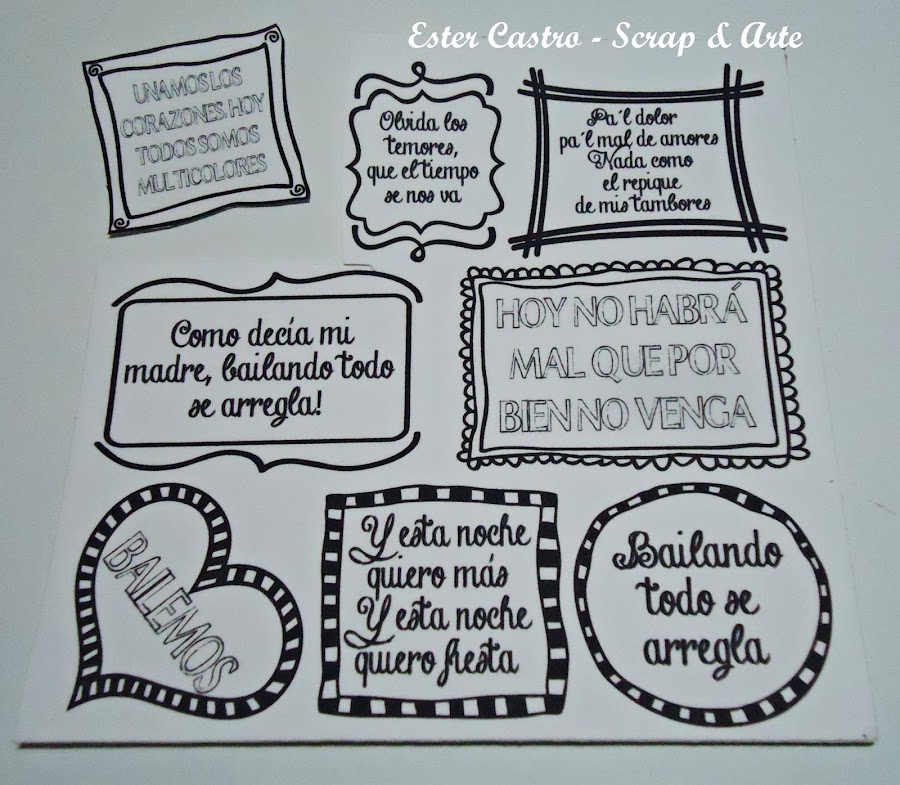 Ester Castro - Scrap & Arte
UNAMOS LOS
CORAZONES, HOY
TODOS SOMOS
MULTICOLORES
Olvida los
temores,
que el tiempo
se nos va
Pa´l dolor
pa´l mal de amores
Nada como
el repique
de mis tambores
Como decía mi
madre, bailando todo
se arregla!
HOY NO HABRÁ
MAL QUE POR
BIEN NO VENGA
BAILEMOS
Y esta noche
quiero más
Y esta noche
quiero fiesta
Bailando
todo se
arregla